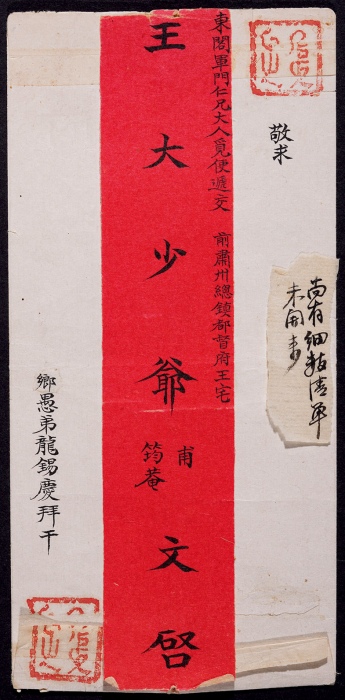 敬求
尚有細粘清單
未開
東閣軍門仁兄大人覓便遞交 前肅州總鎮都督府王宅
王大少爺 甫筠菴 文啓
鄉愚弟龍錫慶拜干